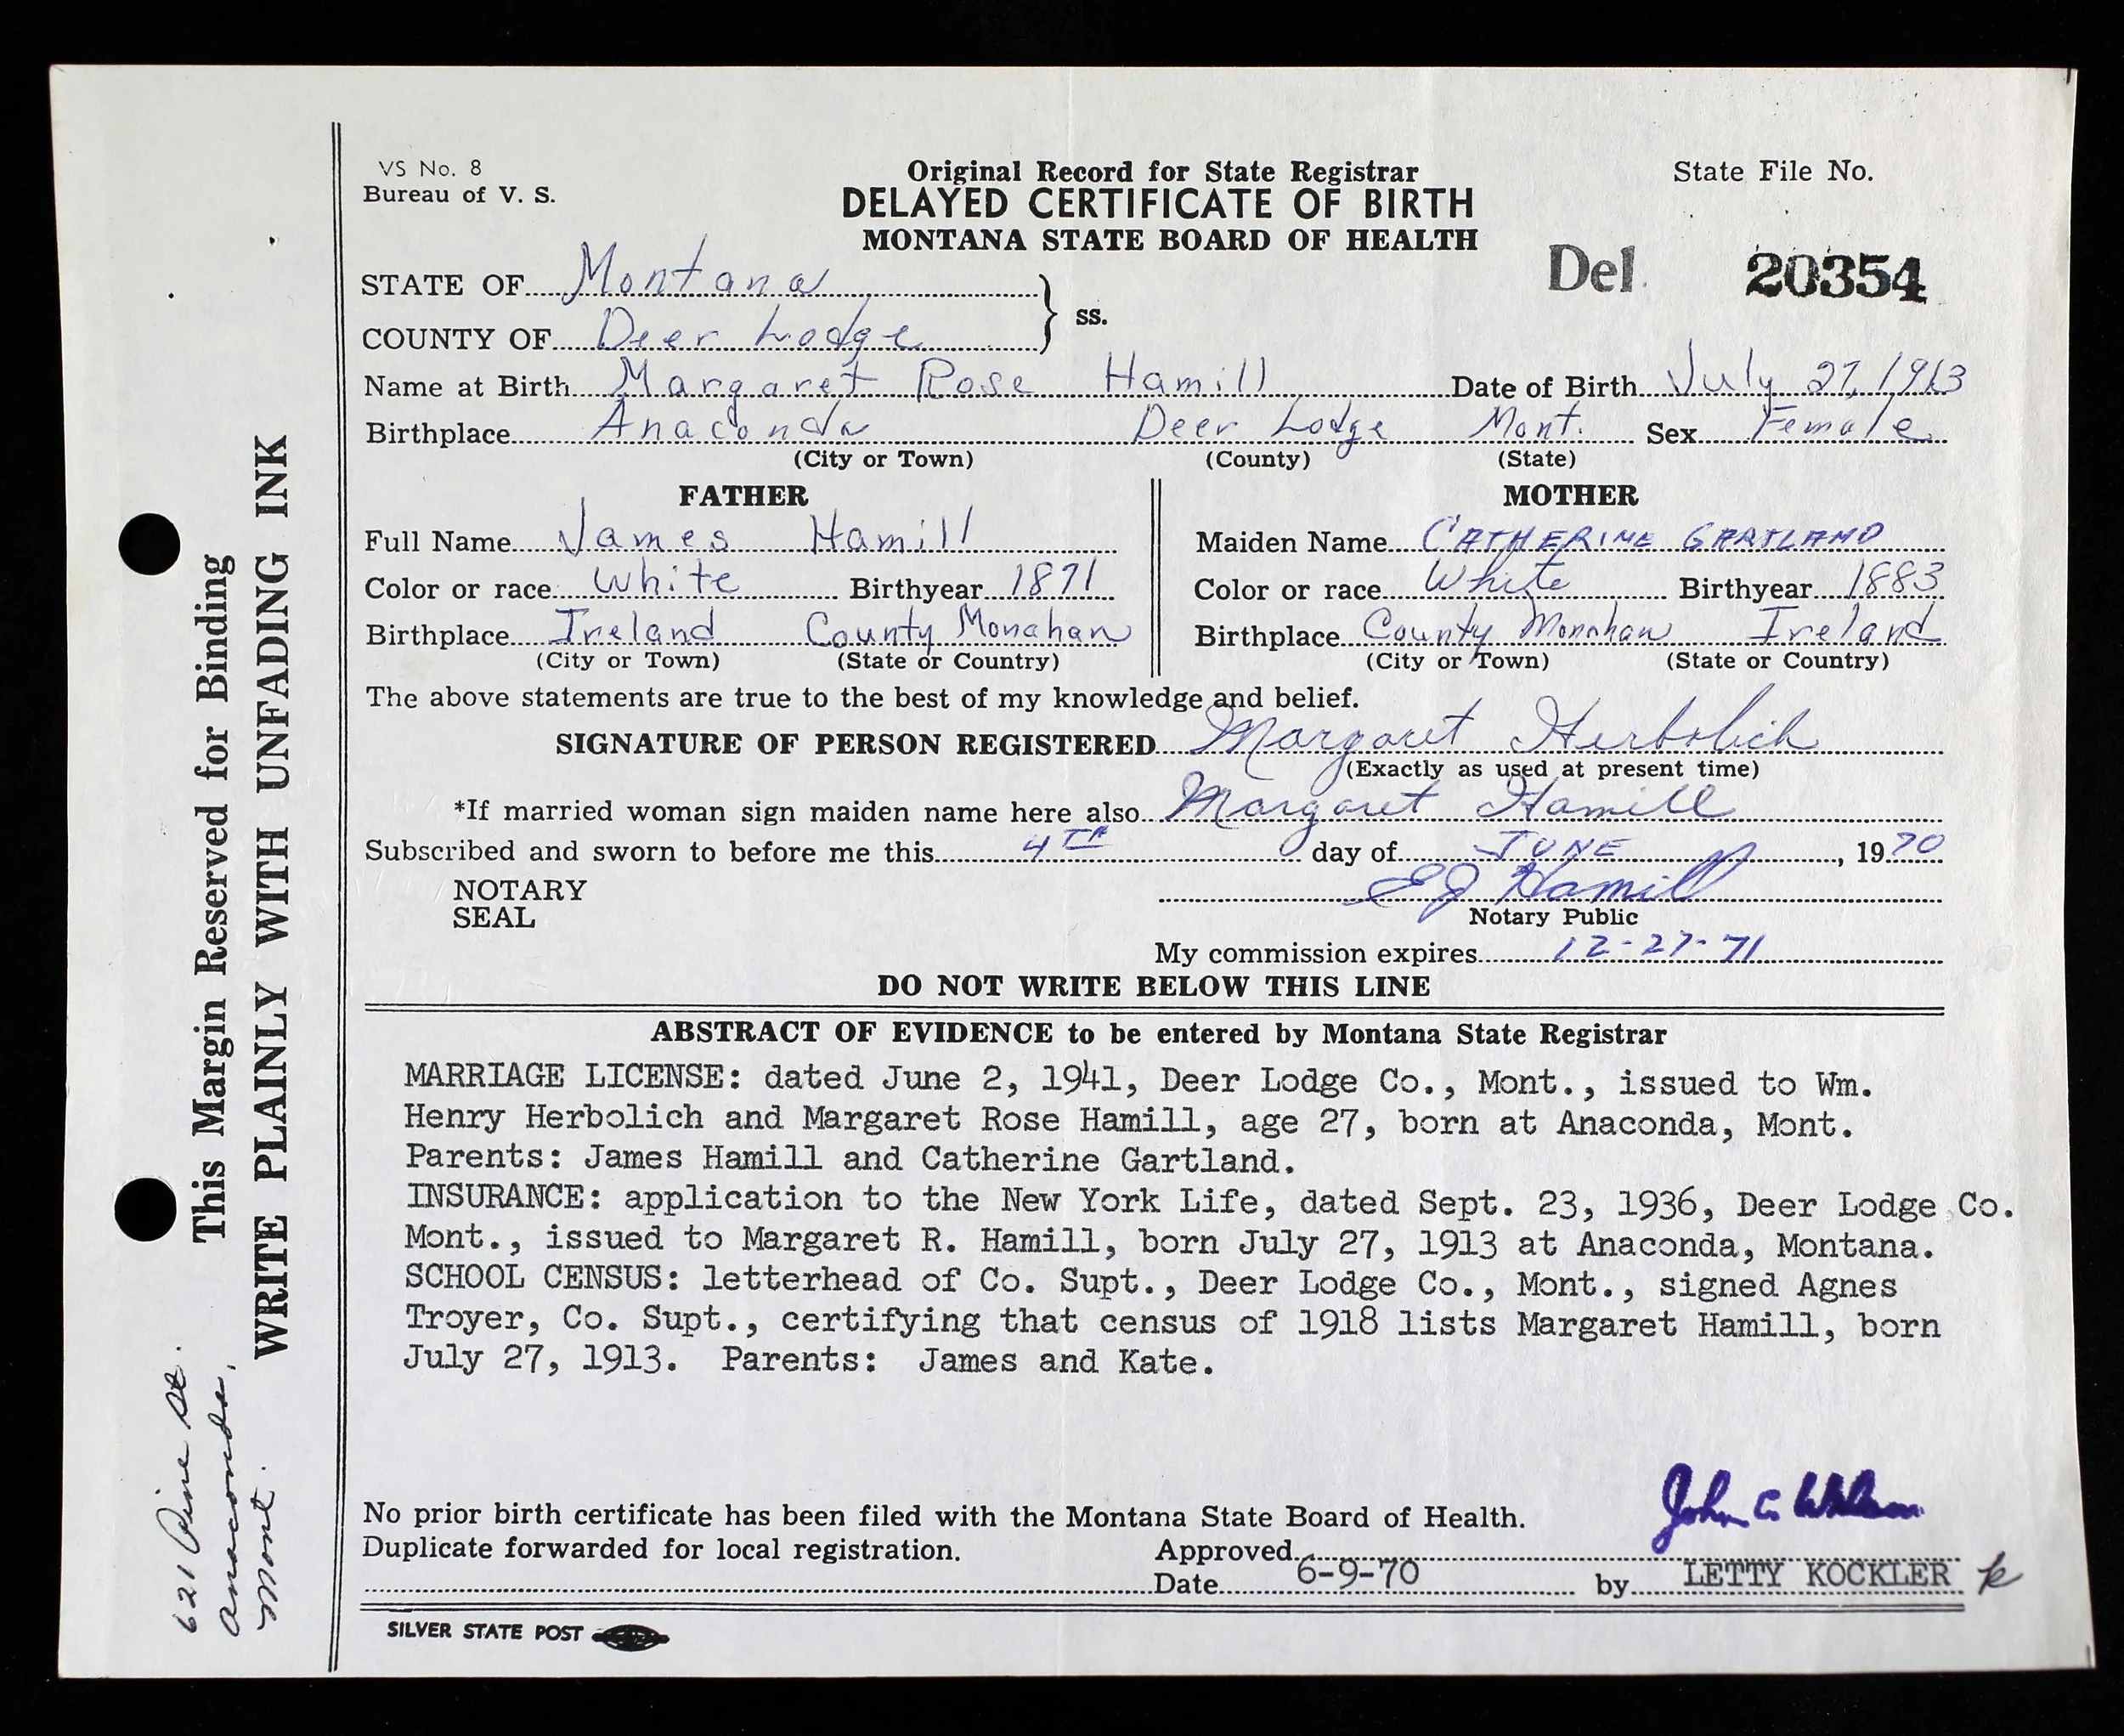 VS No. 8
Bureau of V. S.
Original Record for State Registrar
DELAYED CERTIFICATE OF BIRTH
MONTANA STATE BOARD OF HEALTH
State File No.
Del. 20354
STATE OF Montana
COUNTY OF Deer Lodge } ss.
Name at Birth Margaret Rose Hamill Date of Birth July 27, 1913
Birthplace Anaconda Deer Lodge Mont. Sex Female
(City or Town) (County) (State)
FATHER
Full Name James Hamill
Color or race White Birthyear 1871
Birthplace Ireland County Monahan
(City or Town) (State or Country)
MOTHER
Maiden Name CATHERINE GARTLAND
Color or race White Birthyear 1883
Birthplace County Monahan Ireland
(City or Town) (State or Country)
The above statements are true to the best of my knowledge and belief.
SIGNATURE OF PERSON REGISTERED Margaret Herbolich
(Exactly as used at present time)
*If married woman sign maiden name here also Margaret Hamill
Subscribed and sworn to before me this 4TH day of JUNE, 1970
NOTARY
SEAL
EJ Hamill
Notary Public
My commission expires 12-27-71
DO NOT WRITE BELOW THIS LINE
ABSTRACT OF EVIDENCE to be entered by Montana State Registrar
MARRIAGE LICENSE: dated June 2, 1941, Deer Lodge Co., Mont., issued to Wm.
Henry Herbolich and Margaret Rose Hamill, age 27, born at Anaconda, Mont.
Parents: James Hamill and Catherine Gartland.
INSURANCE: application to the New York Life, dated Sept. 23, 1936, Deer Lodge Co.
Mont., issued to Margaret R. Hamill, born July 27, 1913 at Anaconda, Montana.
SCHOOL CENSUS: letterhead of Co. Supt., Deer Lodge Co., Mont., signed Agnes
Troyer, Co. Supt., certifying that census of 1918 lists Margaret Hamill, born
July 27, 1913. Parents: James and Kate.
No prior birth certificate has been filed with the Montana State Board of Health.
Duplicate forwarded for local registration.
Approved John C
Date 6-9-70 by LETTY KOCKLER k
SILVER STATE POST
This Margin Reserved for Binding
WRITE PLAINLY WITH UNFADING INK
621 Pine St.
Anaconda,
Mont.